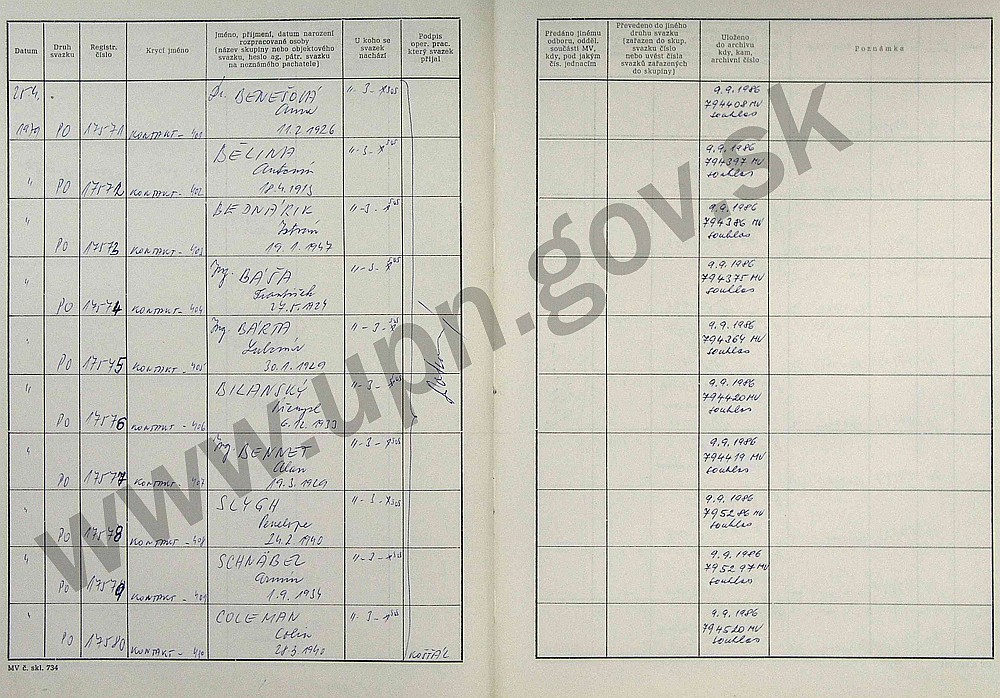 Datum
Druh svazku
Registr. číslo
Krycí jméno
Jméno, příjmení, datum narození
rozpracované osoby
(název skupiny nebo objektového
svazku, heslo ag. pátr. svazku
na neznámého pachatele)
U koho se
svazek
nachází
Podpis
oper. prac.
který svazek
přijal
25.4. Dr. BENEŠOVÁ
Anna
1979 PO 17571 KONTAKT - 401 11.2.1926
BĚLINA
Antonín
" PO 17572 KONTAKT - 402 18.4.1913
BEDNÁRIK
" PO 17573 KONTAKT - 403 19.1.1947
Ing. BAŠA
František
" PO 17574 KONTAKT - 404 27.5.1924
Ing. BÁRTA
Lubomír
" PO 17575 KONTAKT - 405 30.1.1929
BILANSKÝ
" PO 17576 KONTAKT - 406 6.12.1933
Ing. BENNET
Alan
" PO 17577 KONTAKT - 407 19.3.1929
SLYGH
Penelope
" PO 17578 KONTAKT - 408 24.2.1940
SCHNÄBEL
Armin
" PO 17579 KONTAKT - 409 1.9.1934
COLEMAN
Colin
" PO 17580 KONTAKT - 410 28.3.1940
KOŠŤÁL
MV č. skl. 734
Předáno jinému
odboru, odděl.
součásti MV,
kdy, pod jakým
čís. jednacím
Převedeno do jiného
druhu svazku
(zařazen do skup.
svazku číslo
nebo uvést čísla
svazků zařazených
do skupiny)
Uloženo
do archivu
kdy, kam,
archivní číslo
Poznámka
9.9.1986
794408 MV
souhlas
9.9.1986
794397 MV
souhlas
9.9.1986
794386 MV
souhlas
9.9.1986
794375 MV
souhlas
9.9.1986
794364 MV
souhlas
9.9.1986
794420 MV
souhlas
9.9.1986
794419 MV
souhlas
9.9.1986
795286 MV
souhlas
9.9.1986
795297 MV
souhlas
9.9.1986
794520 MV
souhlas
www.upn.gov.sk